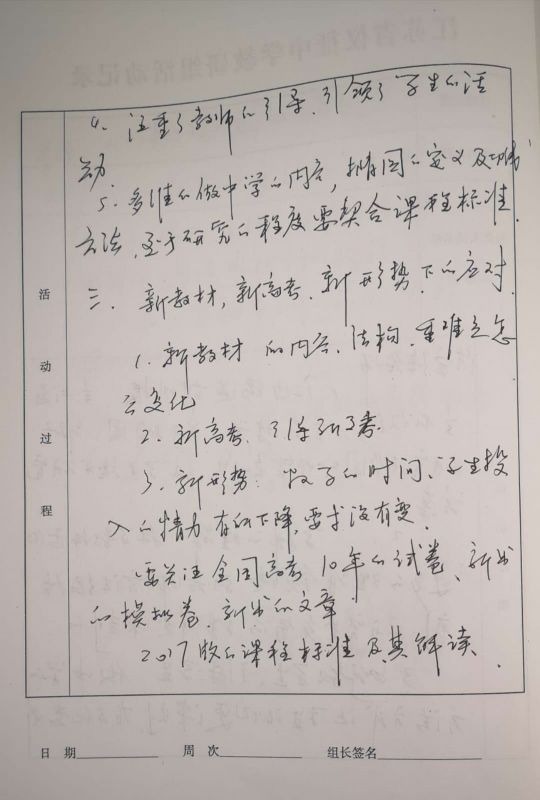 4. 注重了教师的引导、引领了学生的活
动.
5. 多维的做中学的内容, 椭圆的定义及
方法, 至于研究的程度要契合课程标准.
三. 新教材, 新高考, 新形势下的应对.
1. 新教材 的内容、结构、重难点怎
么变化
2. 新高考.
3. 新形势: 的时间、学生投
入的精力有所下降, 要求没有变.
要关注全国高考10年的试卷、新出
的模拟卷. 新出的文章.
2017版的课程标准及其解读.
活动过程
日 期 周 次 组长签名